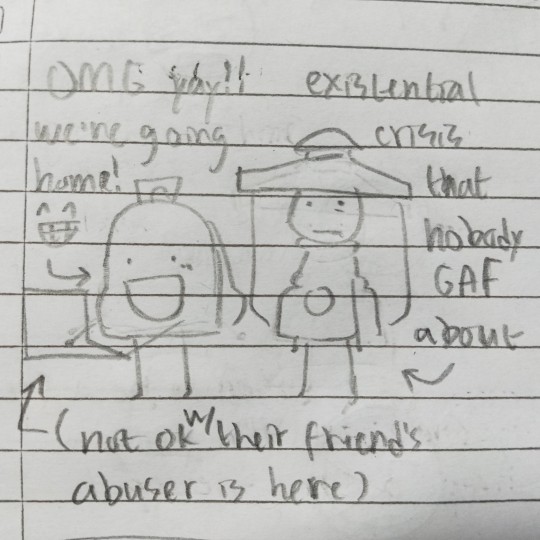 OMG yay!!
we're going
home!
existential
crisis
that
nobody
GAF
about
(not ok w/ their friend's
abuser is here)